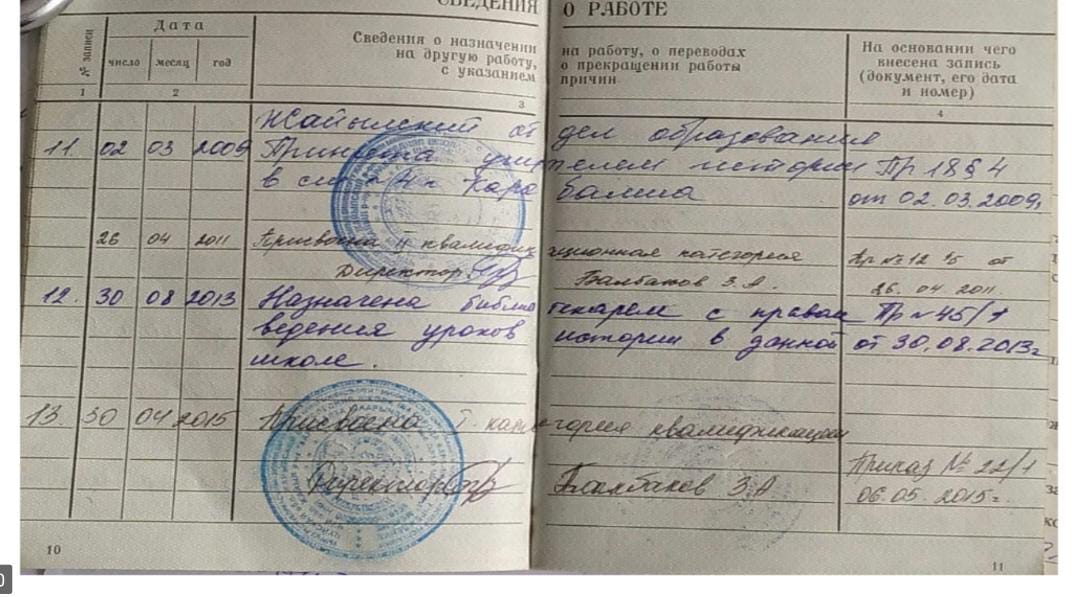 СВЕДЕНИЯ О РАБОТЕ
№ записи
Дата
число месяц год
Сведения о назначении на работу, о переводах
на другую работу, о прекращении работы
с указанием причин
На основании чего
внесена запись
(документ, его дата
и номер)
1 2 3 4
Жайылский отдел образования
11. 02 03 2009 Принята учителем истории Пр 18 § 4
в Карабалта от 02.03.2009г
26 04 2011 Присвоена II квалификационная категория Пр № 12 от
Директор Балбаков З.А. 26.04.2011.
12. 30 08 2013 Назначена библиотекарем с правом Пр № 45/1
ведения уроков истории в данной от 30.08.2013г
школе.
13. 30 04 2015 Присвоена I категория квалификации
Приказ № 22/1
Директор Балбаков З А 06.05.2015г
10 11